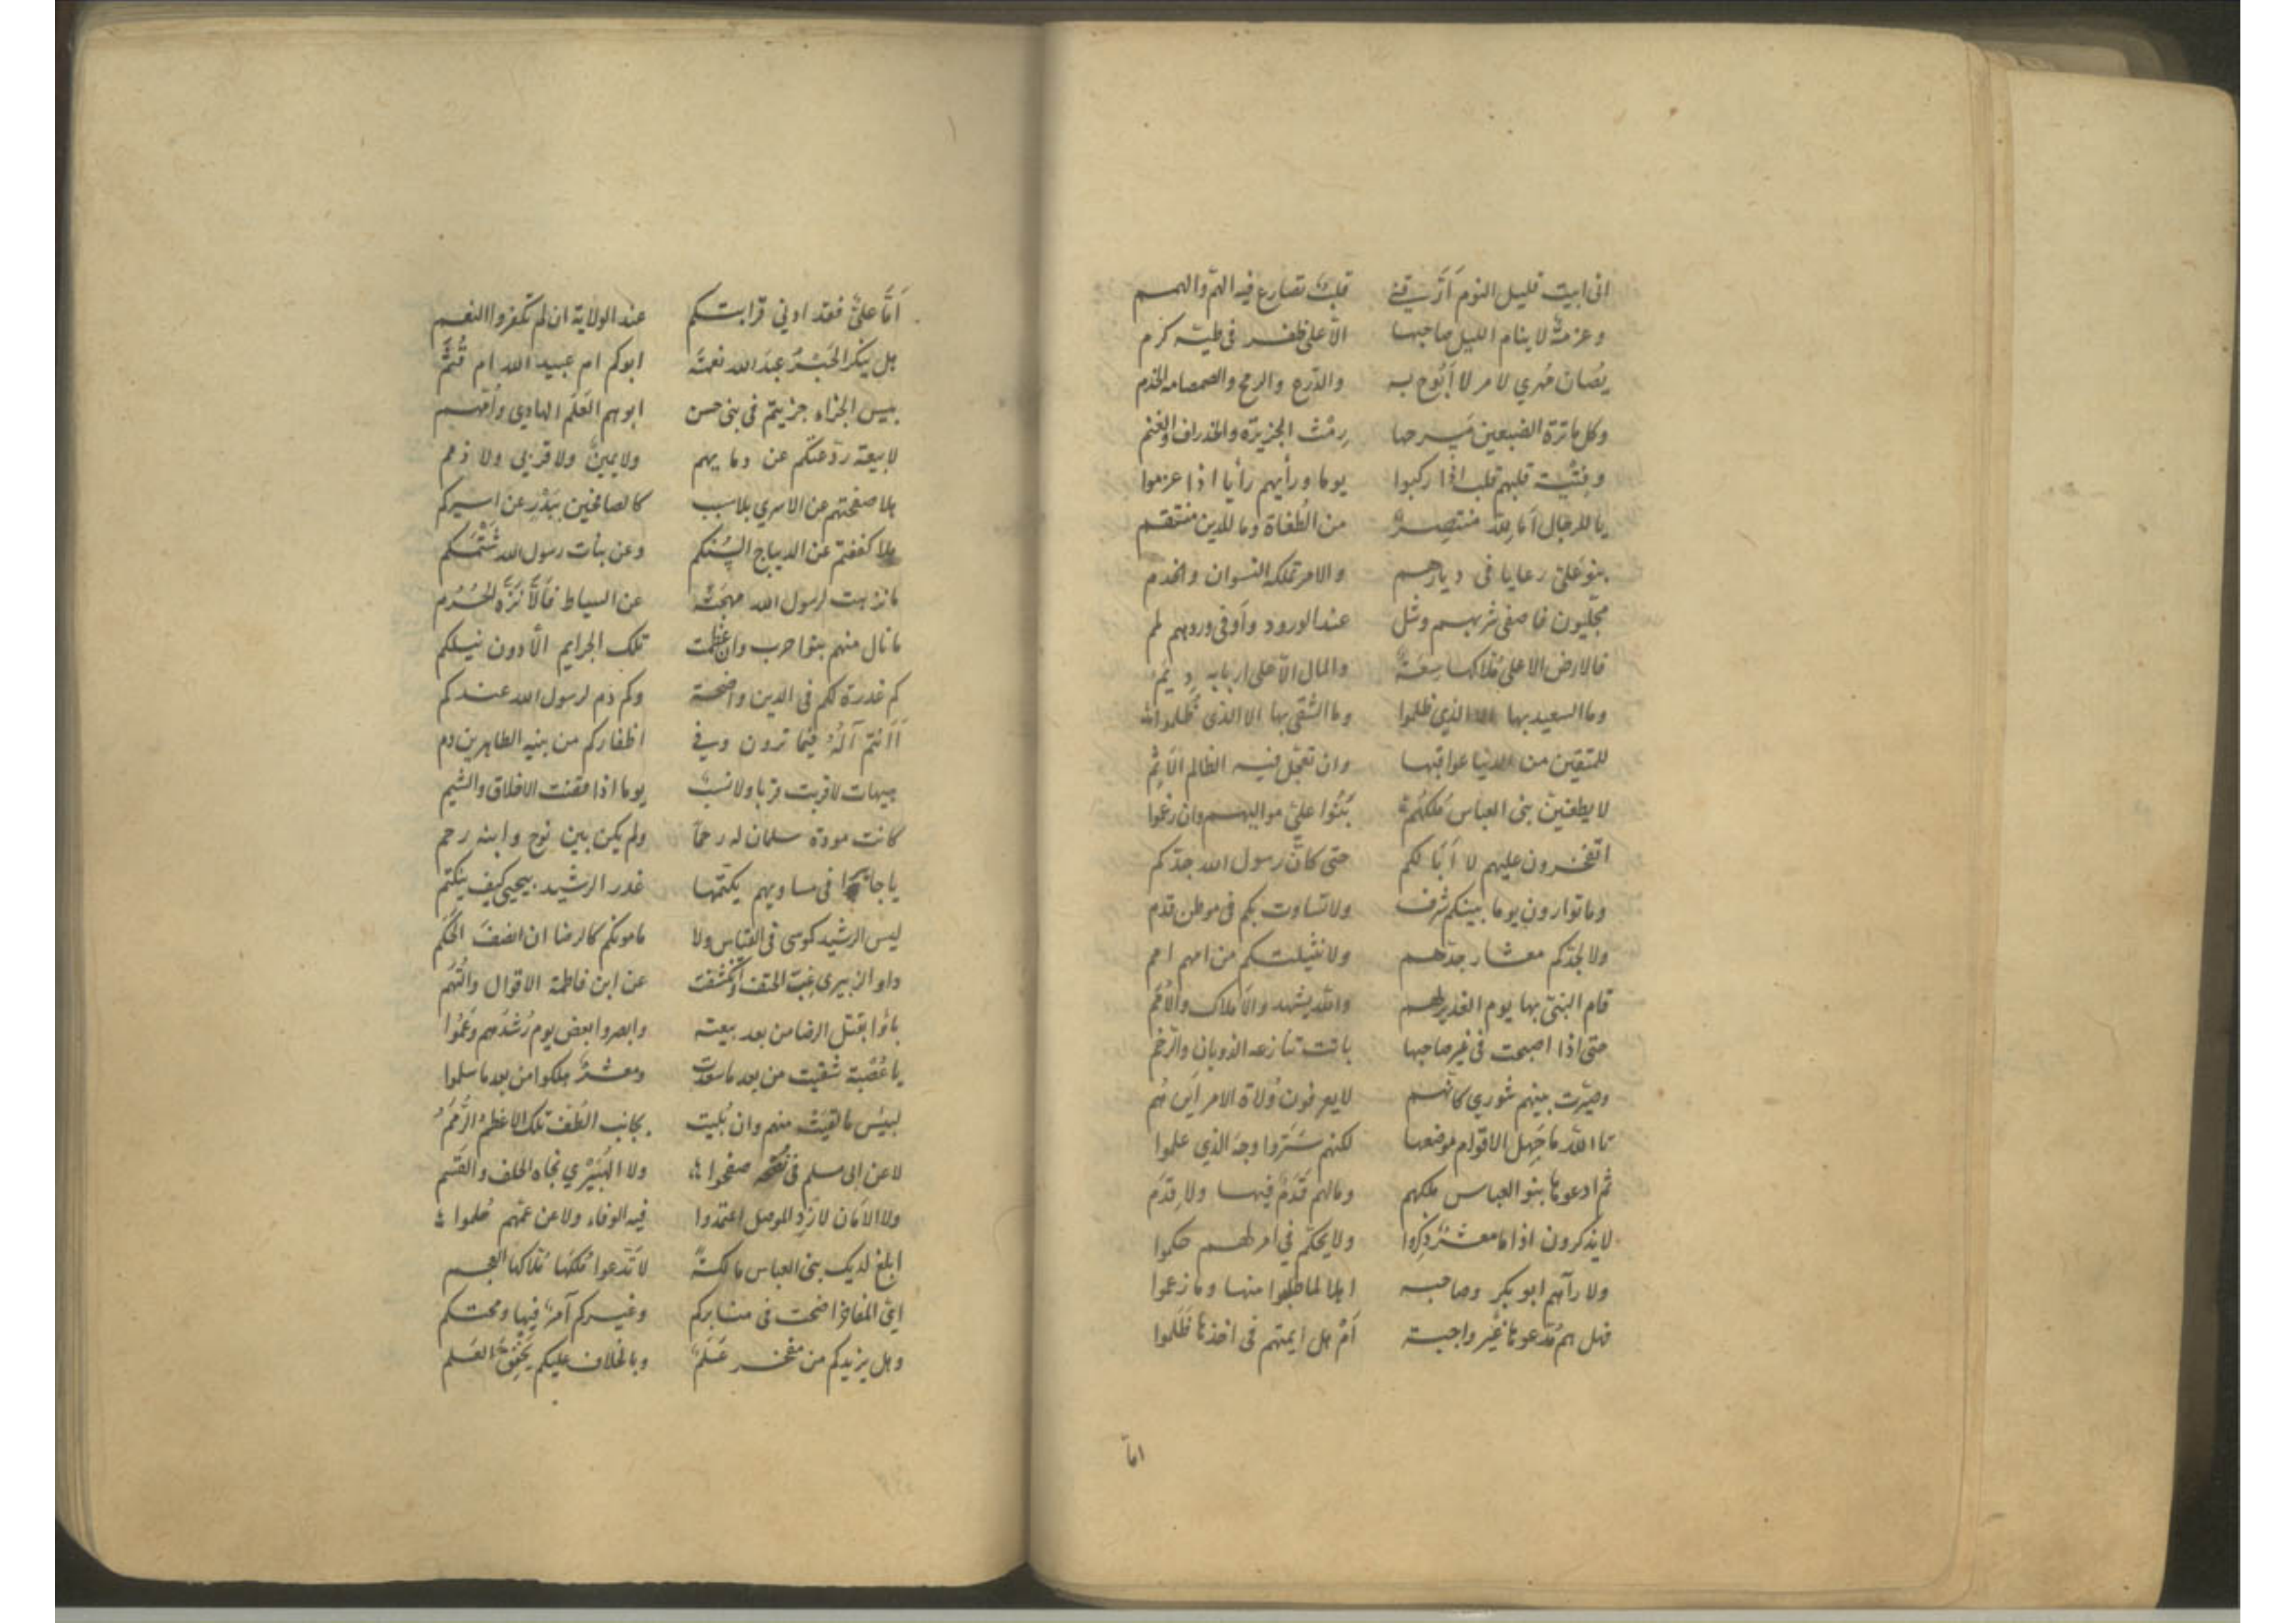 انى ابيت قليل النوم اَرّقنے قلبٌ تصارع فيه الهمّ والهمم
وعزمةٌ لا ينام الليل صاحبها الاّ على ظفر فى طيّه كرم
يُصان مُهري لامر لا اَبُوح به والدّرع والرمح والصمصامه الخذم
وكل مائرة الضبعين مَسرحها رمث الجزيرة والخذراف والغنم
وفتية قلبهم قلب اذا ركبوا يوما ورأيهم رأيا اذا عزموا
يا للرجال اَما للّه منتصرٌ من الطُغاة وما للدين منتقم
بنو علىّ رعايا فى ديارهم والامر تملكه النسوان والخدم
مجلّيون فاصفى شربهم وشل عند الورود واَوفى ورودهم لمم
فالارض الا على مُلاكها سِعَةٌ والمال الاّ على اربابه ديم
وما السعيد بها الا الذي ظلموا وما الشقى بها الا الذى ظلموا
للمتقين من الدنيا عواقبها وان تعجّل فيه الظالم الاَثِم
لا يطغينّ بنى العباس مُلكُهُم بَنُوا علىّ مواليهم وان رغموا
اتفخرون عليهم لا اَبَا لكم حتى كانّ رسول الله جدّكم
وما توارون يوما بينكم شرف ولا تساوت بكم فى موطن قدم
ولا لجدّكم معشار جدّهم ولا نثيلتكم من امهم امم
قام النبىّ بها يوم الغدير لهم واللّه يشهد والاَملاك والاُمَم
حتى اذا اصبحت فى غير صاحبها باتت تنازعه الذوبان والرّخم
وصيّرت بينهم شوري كانّهم لا يعرفون وُلاة الامر اَين هُم
تا اللّه ما جَهِل الاقوام موضعها لكنهم سَتَروا وجهَ الذي علموا
ثم ادعوها بنو العباس ملكهم ومالهم قَدَمٌ فيها ولا قِدَم
لا يذكرون اذا ما معشرٌ ذكِروا ولا يحكّم في امر لهم حكموا
ولا رآهم ابو بكر وصاحبه اهلا لما طلبوا منها وما زعموا
فهل هم مُدّعوها غَيْر واجبة اَمْ هل ايمتهم فى اخذها ظَلَموا
اما
اَمَّا علىٌّ فقد ادنى قرابتكم عند الولاية ان لم تكفروا النعم
هل ينكر الحَبْرُ عبدَ الله نعمتَه ابوكم ام عبيد الله ام قُثَمُ
بيس الجزاء جزيتم فى بنى حسن ابوهم العَلَم الهادي واُمّهم
لا بيعة ردّعتكم عن دمايهم ولا يمينٌ ولا قربى ولا ذمم
هلا صفحتهم عن الاسري بلا سبب كالصافحين ببَدْرٍ عن اسيركم
هلا كففتم عن الديباج السُنكم وعن بنات رسول الله شَتْمَكم
ما نزهت لرسول الله مهجتُه عن السياط فَاَلّا نَزّه الحُرُم
ما نال منهم بنوا حرب وان عظمت تلك الجرايم الّا دون نيلكم
كم غدرة لكم فى الدين واضحة وكم دم لرسول الله عندكم
اَاَنتُم آلُهُ فيما ترون وفي اظفاركم من بنيه الطاهرين دم
هيهات لا قربت قربا ولا نسبٌ يوما اذا مقنت الاخلاق والشيم
كانت مودة سلمان له رحمًا ولم يكن بين نوح وابنه رحم
يا جا‌هرا فى مساويهم يكتمها غدر الرشيد بيحيى كيف ينكتم
ليس الرشيد كموسى فى القياس ولا مامونكم كالرضا ان انصفَ الحكَم
داو الزبيري غبّ الحتف وانكشفت عن ابن فاطمة الاقوال والتُّهَم
باؤا بقتل الرضا من بعد بيعته وابصروا بعض يوم رُشدُهم وَعَمُوا
يا عُصْبة شقيت من بعد ما سعدت ومعشرٌ هلكوا من بعد ما سلموا
لبيس ما لقيَتْ منهم وان بُليت بجانب الطّف تلك الاعظمُ الرُّمَم
لا عن ابى مسلم فى نُصحه صفحوا ولا الهُبَيْري نجاه الحلف والقسَم
ولا الاَمان لازدِ الموصل اعتمدوا فيه الوفاء ولا عن عمّهم حلموا
ابلغ لديك بنى العباس مالكةً لا تَدّعوا مُلكَها مُلاكها العجم
اىّ المفاخر اضحت فى منابركم وغيركم آمرٌ فيها ومحتكم
وهل يزيدكم من مفخر عَلَمٌ وبالخلاف عليكم يَخْفِقُ العَلَم